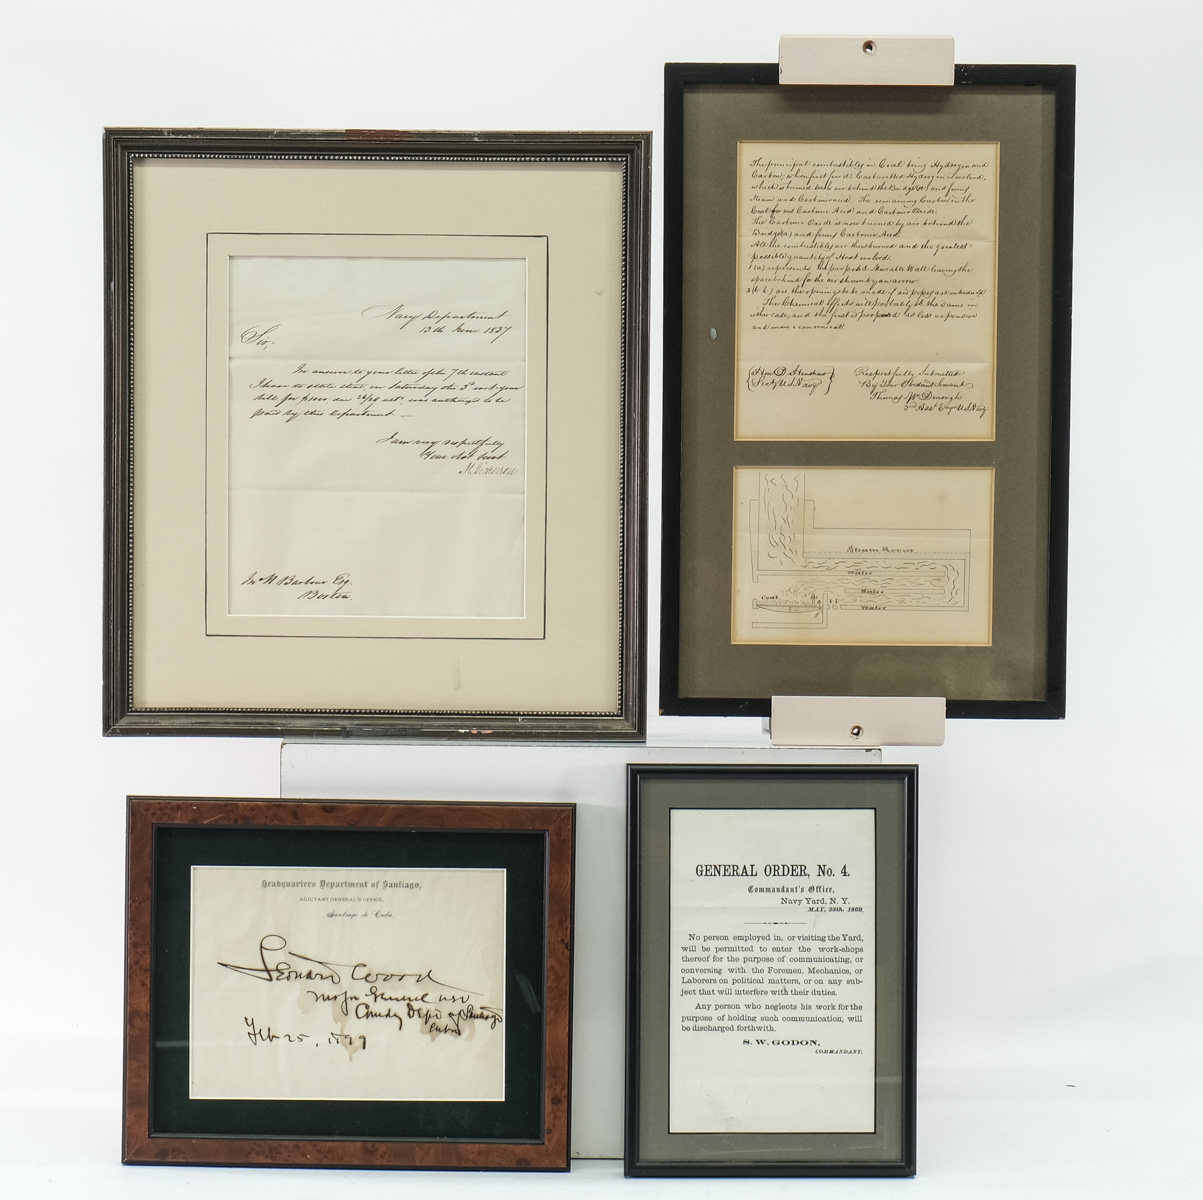 Navy Department
13th June 1837
Sir,
In answer to your letter of the 7th instant
I have to state that, on Saturday the 3d inst your
bill for $1000, was authorized to be
paid by this Department.—
I am very respectfully
Your Obt Servt
M. Dickerson
Jno N. Barbour Esq.
Boston.
The principal combustibles in Coal being Hydrogen and
Carbon; when first fired, Carburetted Hydrogen is evolved,
which is burned with air behind the Bridge (a) and forms
Steam and Carbonic acid. The remaining Carbon in the
Coal forms Carbonic Acid and Carbonic Oxide.
The Carbonic Oxide is now burned by air behind the
Bridge (a) and forms Carbonic Acid.
All the combustibles are thus burned and the greatest
possible quantity of Heat evolved.
1 (a) represents the proposed Movable Wall leaving the
space behind for the air shown by an arrow.
2 (b b) are the openings to be made if air pipes are introduced
The Chemical effects will probably be the same in
either case, and the first is proposed as less expensive
and more convenient.
Secty U.S. Navy
Respectfully Submitted
By Your Obedient Servant
Thomas
3rd Asst Engr U.S. Navy
Steam Room
Water
Water
Coal
Water
Headquarters Department of Santiago,
ADJUTANT GENERAL'S OFFICE,
Santiago de Cuba,
Leonard Wood
Major General USV
Comdg Dept of Santiago
Cuba
Feb 25, 1899
GENERAL ORDER, No. 4.
Commandant's Office,
Navy Yard, N. Y.
MAY, 28th. 1869.
No person employed in, or visiting the Yard,
will be permitted to enter the work-shops
thereof for the purpose of communicating, or
conversing with the Foremen, Mechanics, or
Laborers on political matters, or on any sub-
ject that will interfere with their duties.
Any person who neglects his work for the
purpose of holding such communication, will
be discharged forthwith.
S. W. GODON,
COMMANDANT.